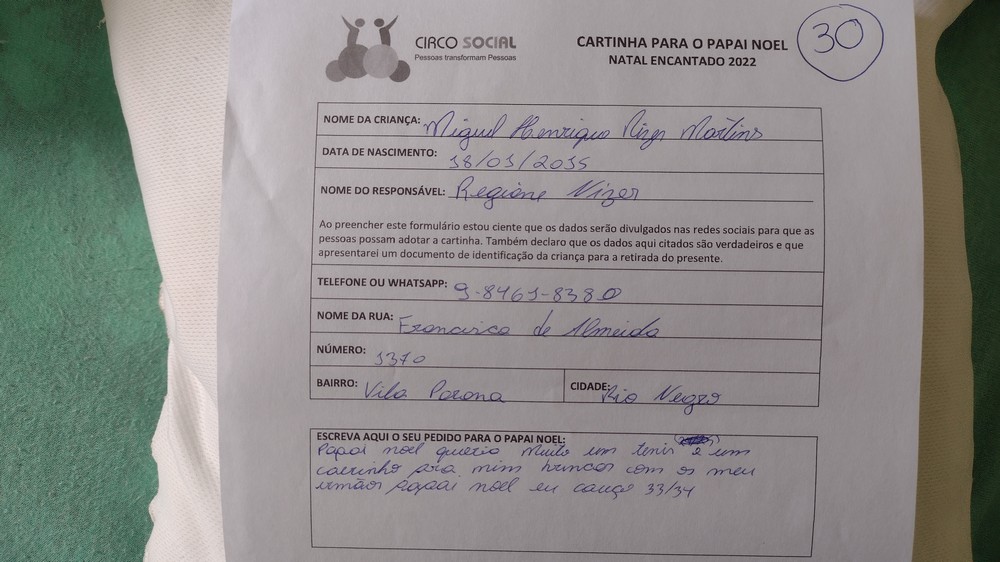 CIRCO SOCIAL
Pessoas transformam Pessoas
CARTINHA PARA O PAPAI NOEL
NATAL ENCANTADO 2022
30
NOME DA CRIANÇA: Miguel Henrique Nizer Martins
DATA DE NASCIMENTO: 18/01/2015
NOME DO RESPONSÁVEL: Regiane Nizer
Ao preencher este formulário estou ciente que os dados serão divulgados nas redes sociais para que as
pessoas possam adotar a cartinha. Também declaro que os dados aqui citados são verdadeiros e que
apresentarei um documento de identificação da criança para a retirada do presente.
TELEFONE OU WHATSAPP: 9-8461-8380
NOME DA RUA: Francisca de Almeida
NÚMERO: 1370
BAIRRO: Vila Parana CIDADE: Rio Negro
ESCREVA AQUI O SEU PEDIDO PARA O PAPAI NOEL:
Papai noel queria muito um tenis e um
carrinho pra mim brincar com os meu
irmãos papai noel eu causo 33/34